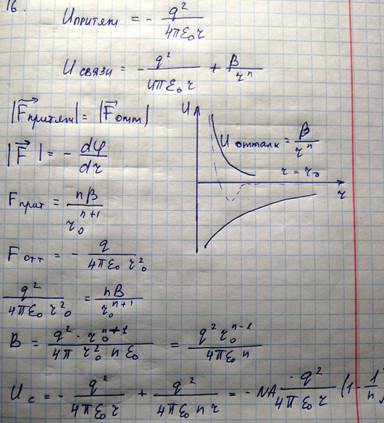 16.
U притяж = - q² / 4πε₀r
U связи = - q² / 4πε₀r + B / rⁿ
|F⃗ притяж| = |F⃗ отт|
|F⃗| = - dφ / dr
F прит = nB / r₀ⁿ⁺¹
F отт = - q / 4πε₀r₀²
q² / 4πε₀r₀² = nB / r₀ⁿ⁺¹
B = q² · r₀ⁿ⁺¹ / 4π r₀² n ε₀ = q² r₀ⁿ⁻¹ / 4πε₀ n
U c = - q² / 4πε₀r + q² / 4πε₀ n r = - NA -q² / 4πε₀r (1 - 1/n)
U
U отталк = B / rⁿ
r = r₀
r